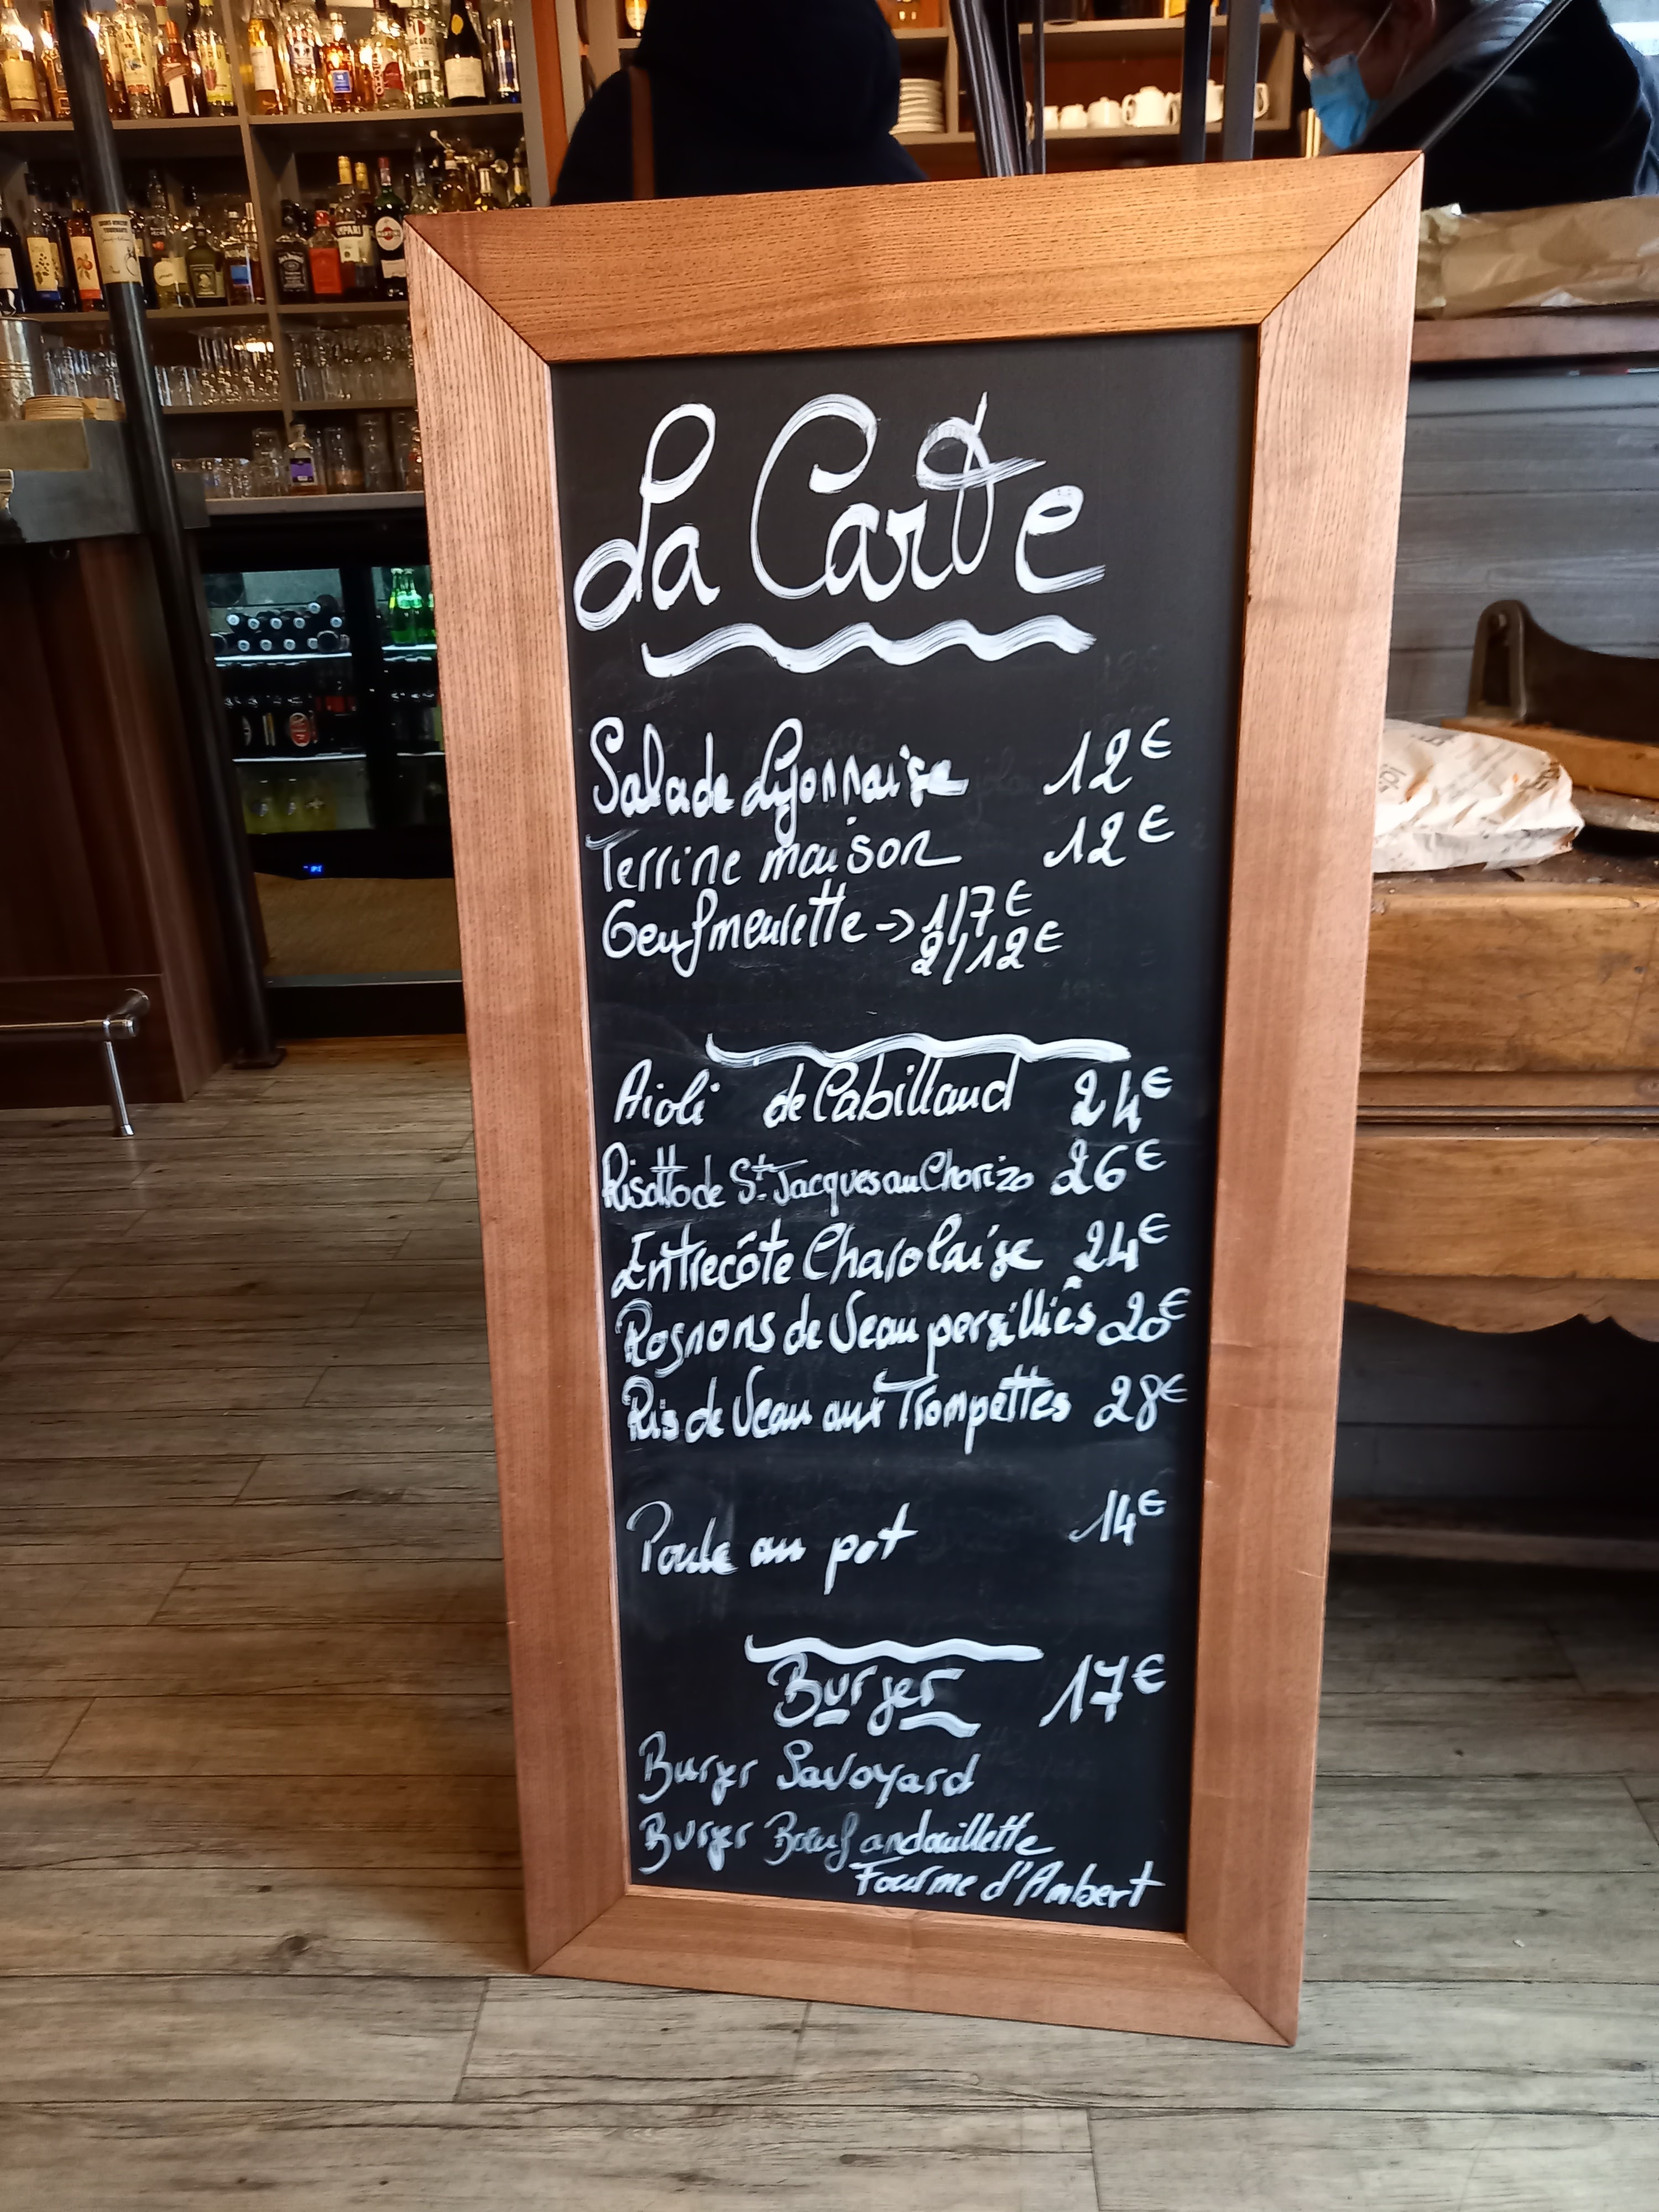 La Carte
Salade Lyonnaise 12€
Terrine maison 12€
Oeuf meurette -> 1/7€
2/12€
Aioli de Cabillaud 24€
Risotto de St Jacques au Chorizo 26€
Entrecôte Charolaise 24€
Rognons de Veau persilliés 20€
Ris de Veau aux Trompettes 28€
Poule au pot 14€
Burger 17€
Burger Savoyard
Burger Boeuf andouillette
Fourme d'Ambert